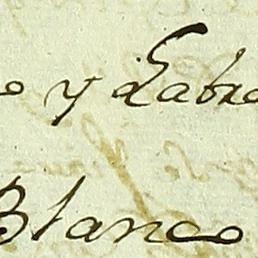 o y Labra
Blanco